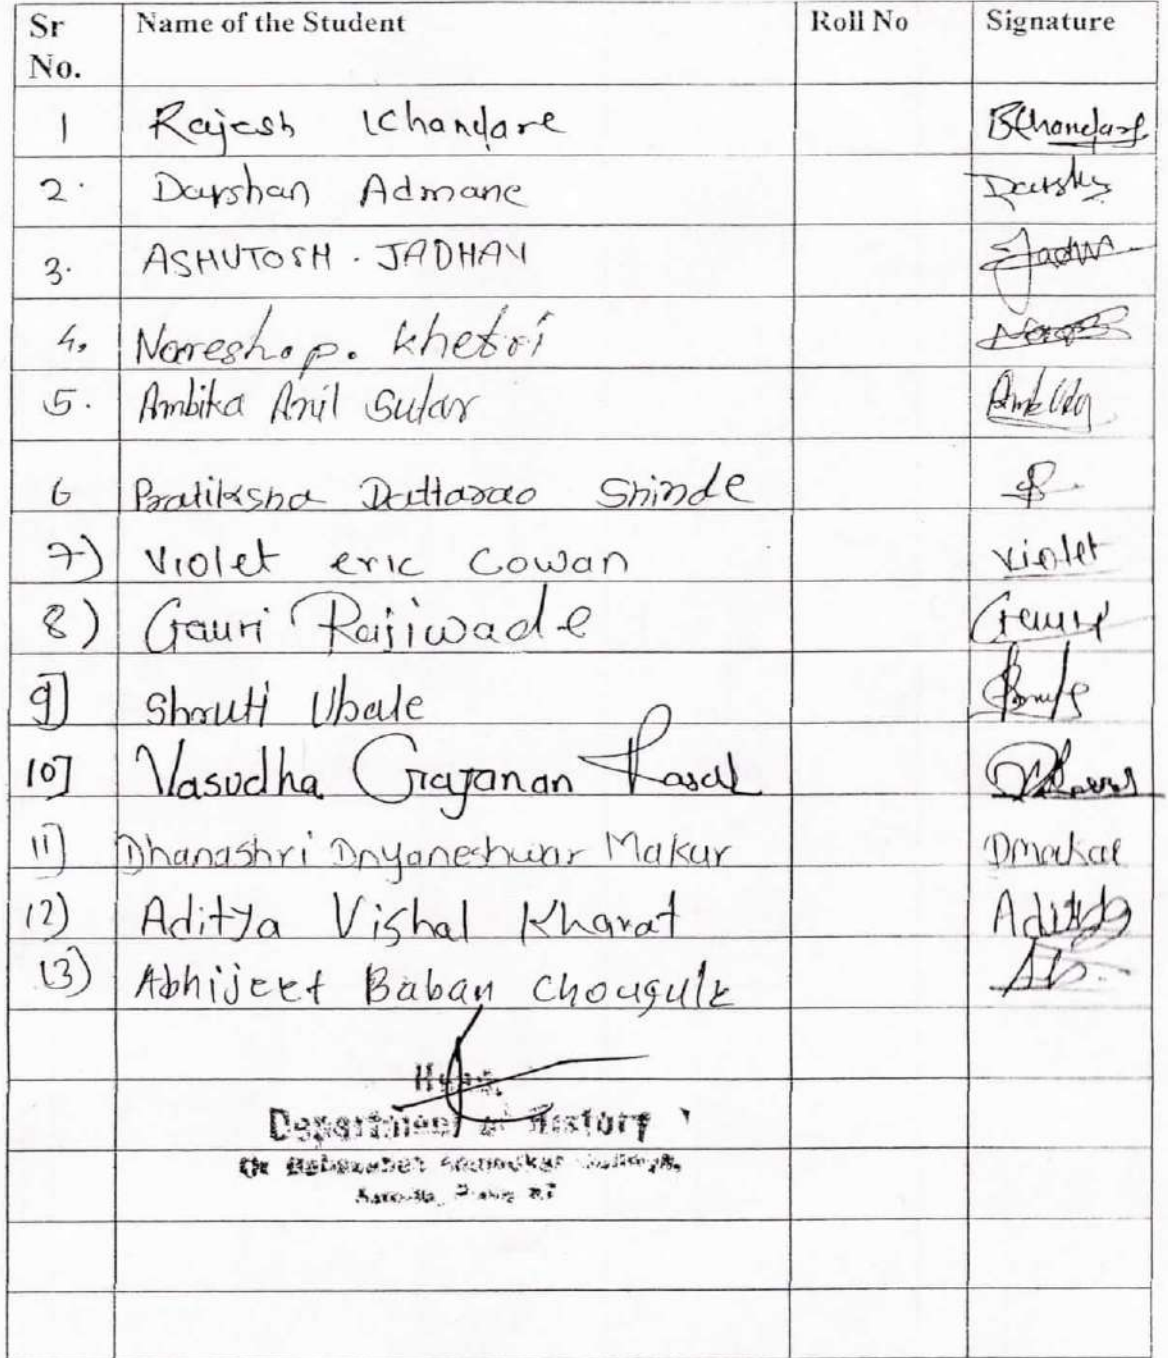 Sr No. Name of the Student Roll No Signature
1 Rajesh Khandare RKhandare
2. Darshan Admane Darshan
3. ASHUTOSH. JADHAV Jadhav
4. Naresh. p. khetri
5. Ambika Anil Sutar
6 Pratiksha Dattarao Shinde
7) Violet eric Cowan violet
8) Gauri Rajiwade Gauri
9] Shruti Ubale
10] Vasudha Gajanan Rasal
11] Dhanashri Dnyaneshwar Makar DMakar
12) Aditya Vishal Kharat Aditya
13) Abhijeet Baban Chougule
Head,
Department of History
Dr Babasaheb Ambedkar College,